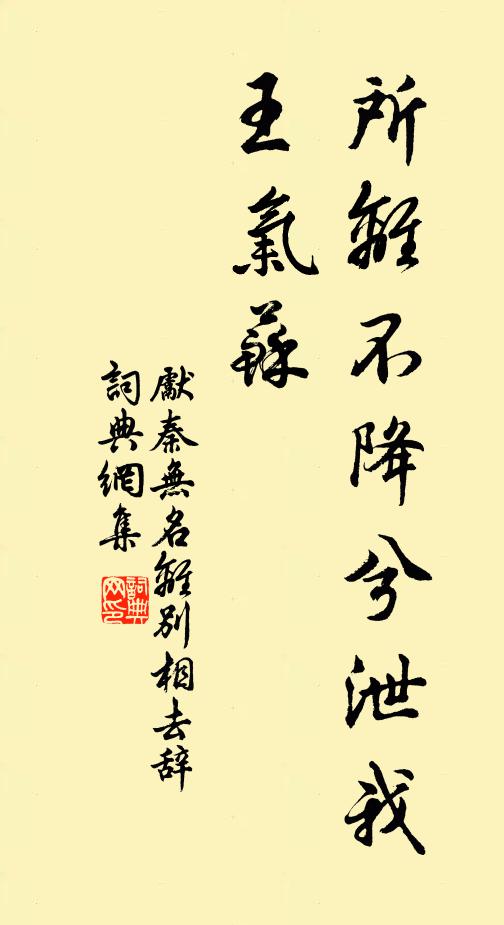 所離不降兮泄我
王氣蘇
獻秦無名離別相去辞
詞典網集
詞典
网印